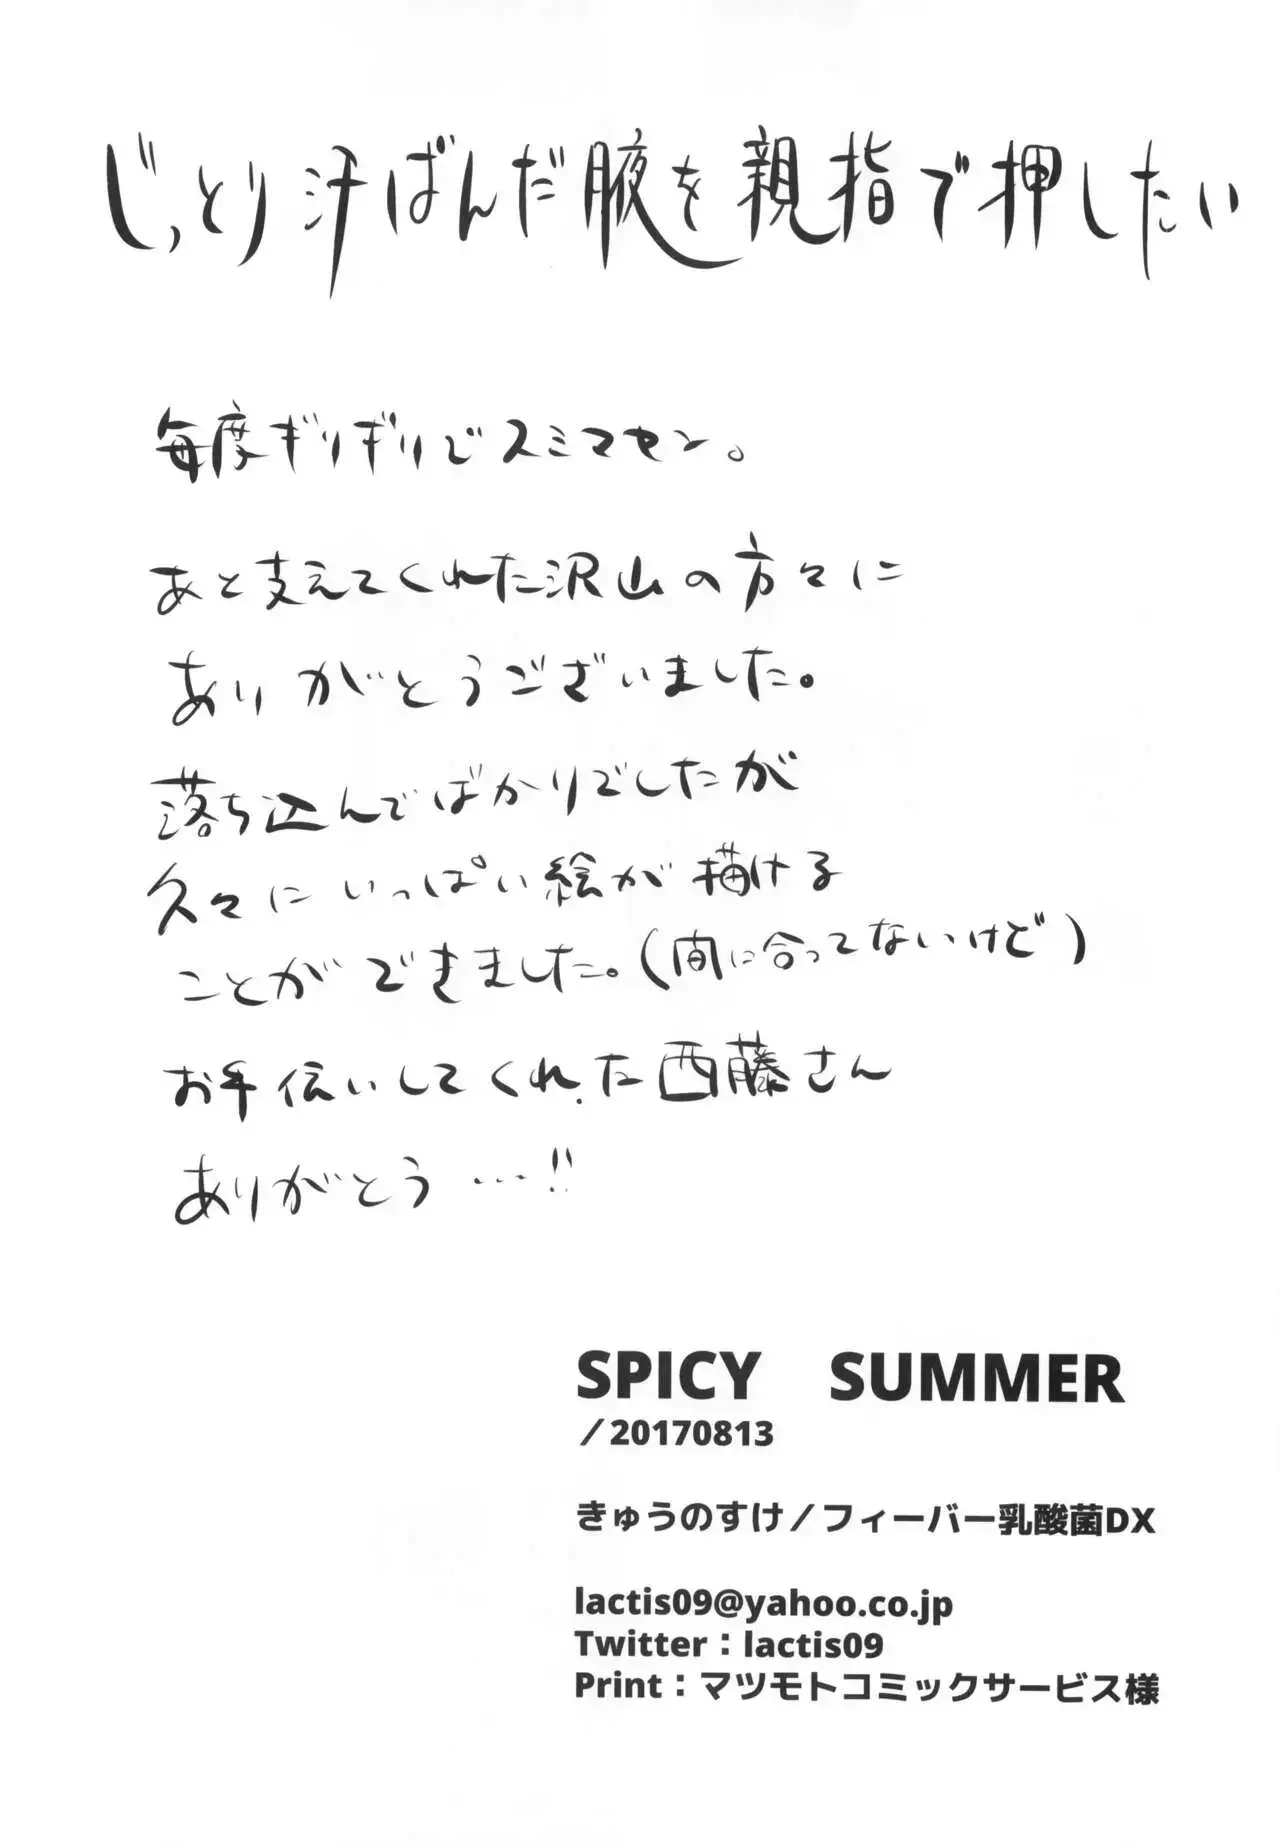 じっとり汗ばんだ腋を親指で押したい
毎度ギリギリでスミマセン。
あと支えてくれた沢山の方々に
ありがとうございました。
落ち込んでばかりでしたが
久々にいっぱい絵が描ける
ことができました。(間に合ってないけど)
お手伝いしてくれた西藤さん
ありがとう…!!
SPICY SUMMER
／20170813
きゅうのすけ／フィーバー乳酸菌DX
lactis09@yahoo.co.jp
Twitter：lactis09
Print：マツモトコミックサービス様